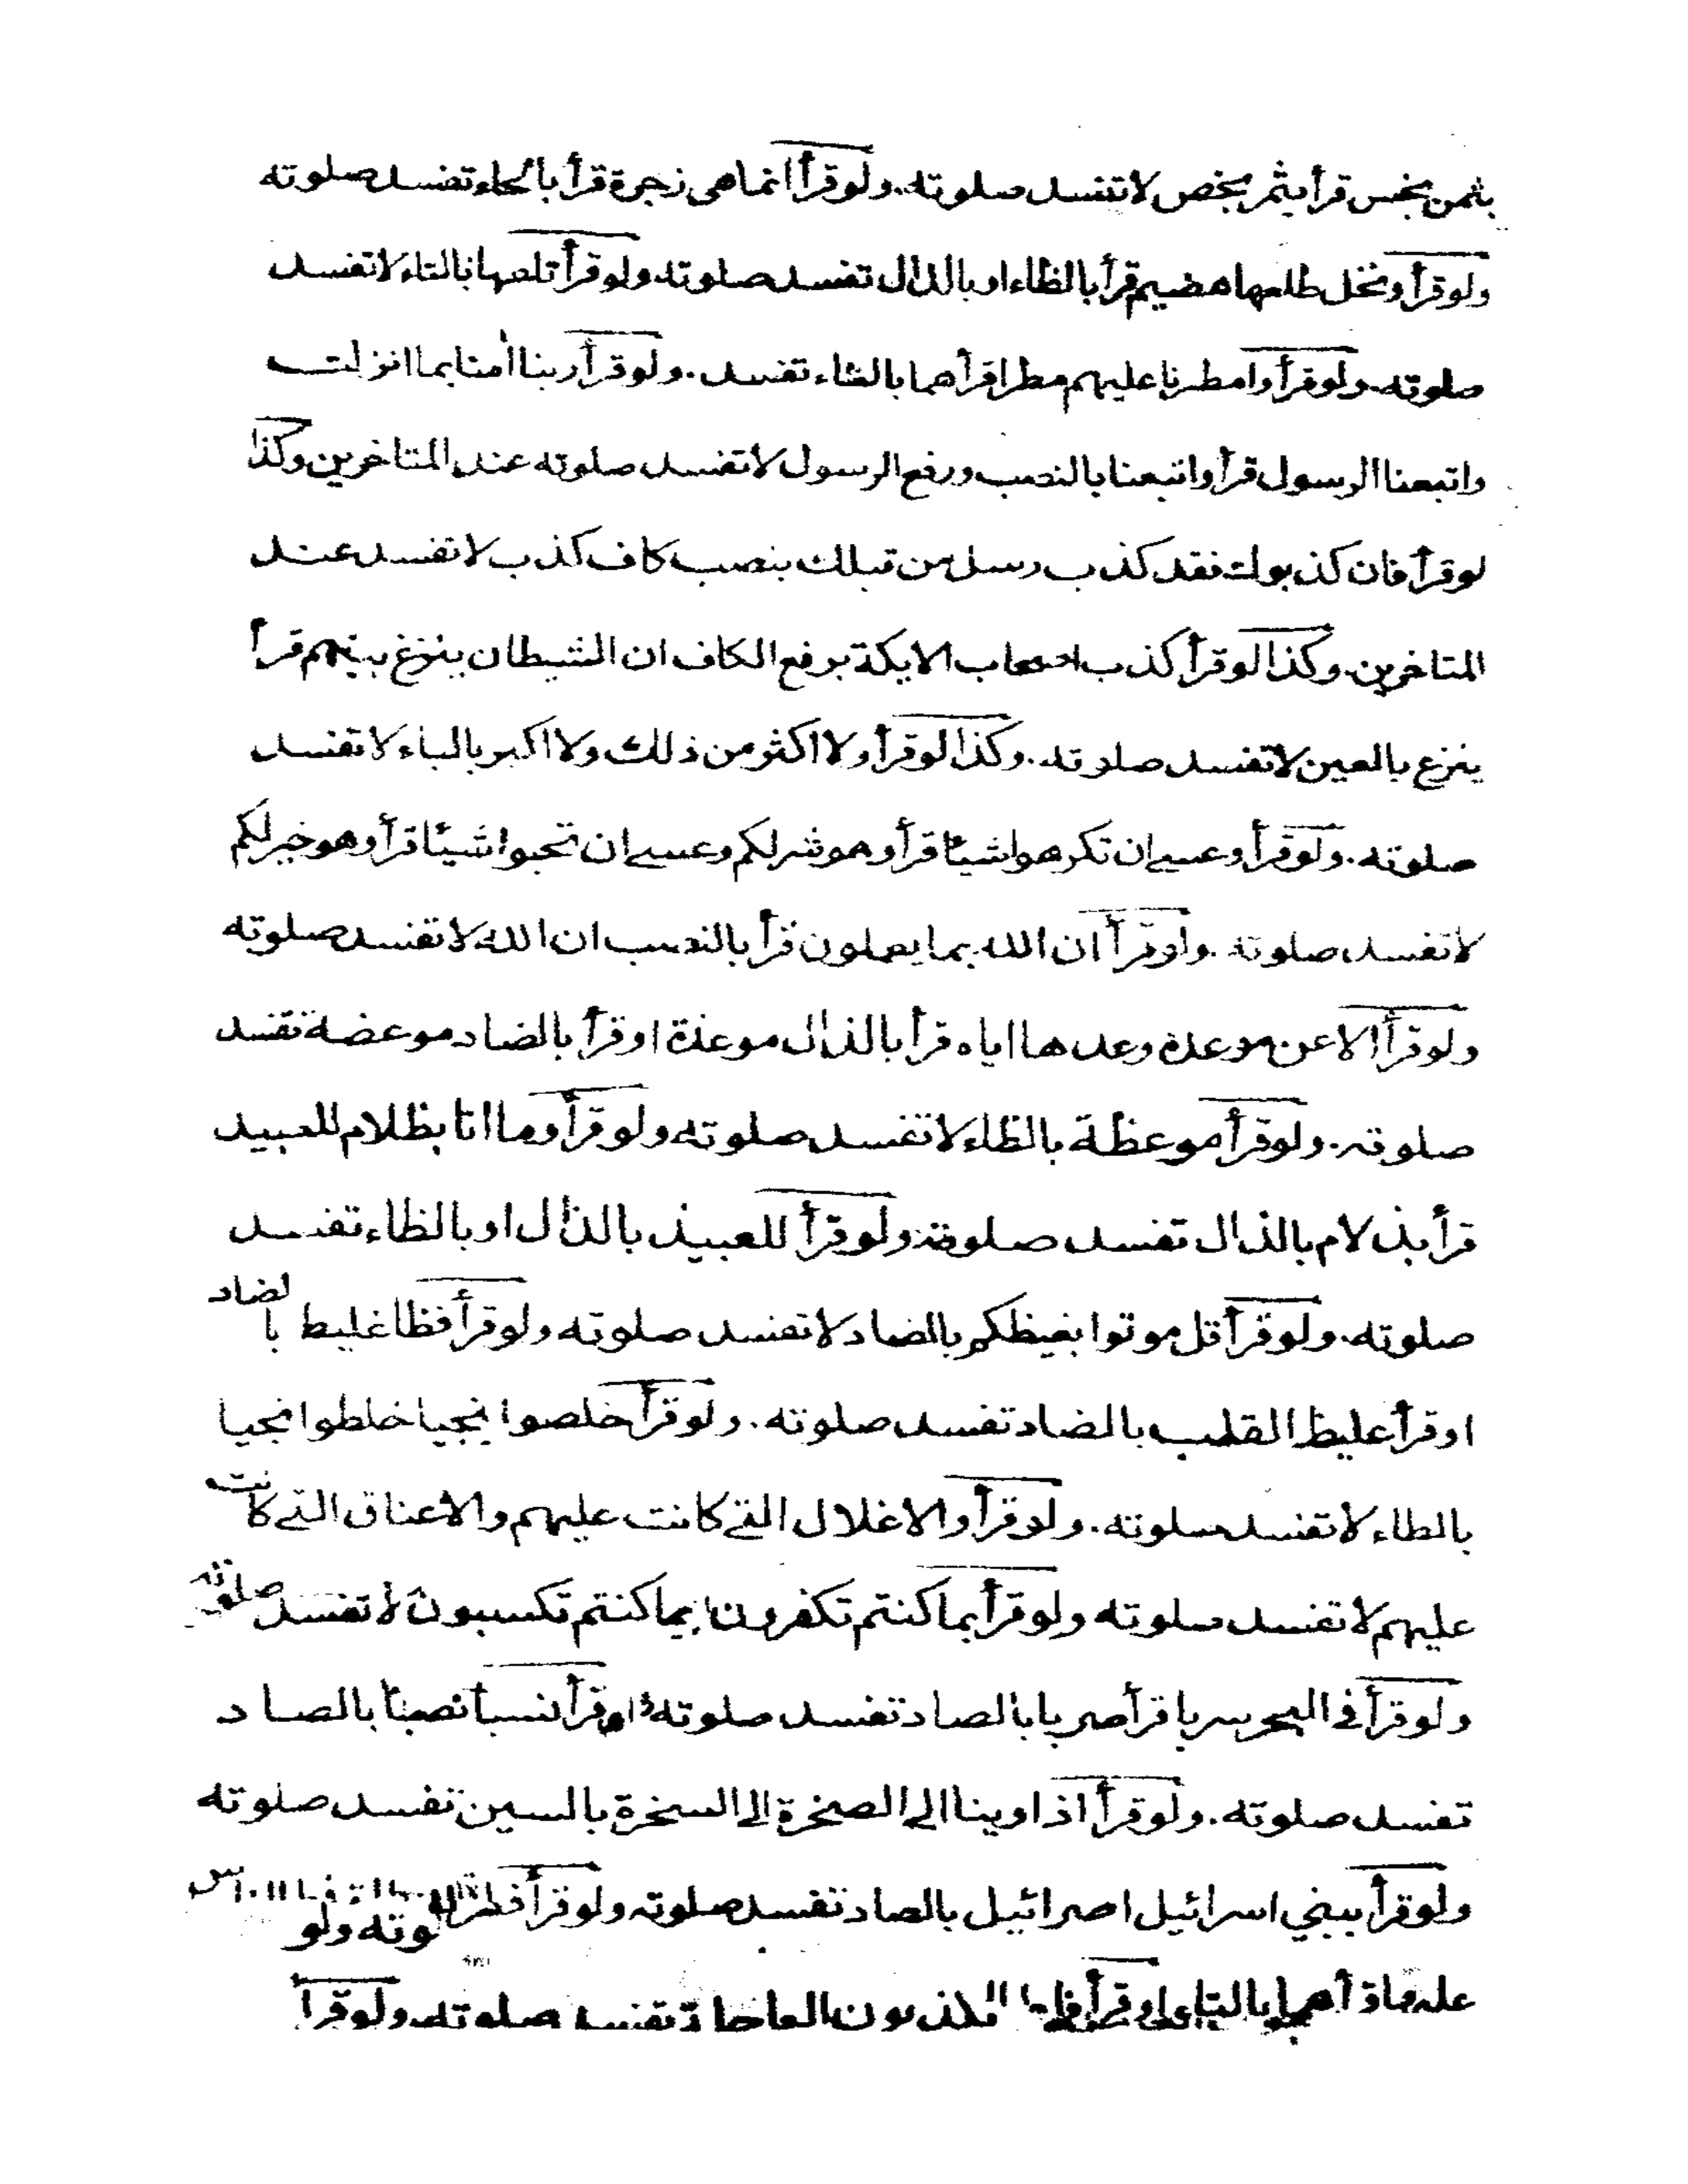 بثمن بخس قرأ بثمر بخص لا تفسد صلوته. ولو قرأ انما هى زجرة قرأ بالحاء تفسد صلوته
ولو قرأ ونخل طلعها هضيم قرأ بالظاء او بالذال تفسد صلوته ولو قرأ تلعها بالتاء لا تفسد
صلوته. ولو قرأ وامطرنا عليهم مطرا قرأهما بالتاء تفسد. ولو قرأ ربنا اٰمنا بما انزلت
واتبعنا الرسول قرأ واتبعنا بالنصب ورفع الرسول لا تفسد صلوته عند المتاخرين وكذا
لو قرأ فان كذبوك فقد كذب رسل من قبلك بنصب كاف كذب لا تفسد عند
المتاخرين. وكذا لو قرأ كذب اصحاب الايكة برفع الكاف ان الشيطان ينزغ بينهم قرأ
ينزع بالعين لا تفسد صلوته. وكذا لو قرأ ولا اكثر من ذلك ولا اكبر بالباء لا تفسد
صلوته. ولو قرأ وعسے ان تكرهوا شيئا قرأ وهو شر لكم وعسے ان تحبوا شيئا قرأ وهو خير لكم
لا تفسد صلوته. ولو قرأ ان الله بما يعملون قرأ بالنصب ان الله لا تفسد صلوته
ولو قرأ الا عن موعدة وعدها اياه قرأ بالذال موعذة او قرأ بالضاد موعضة تفسد
صلوته. ولو قرأ موعظة بالظاء لا تفسد صلوته ولو قرأ وما انا بظلام للعبيد
قرأ بذلام بالذال تفسد صلوته ولو قرأ للعبيذ بالذال او بالظاء تفسد
صلوته. ولو قرأ قل موتوا بغيظكم بالضاد لا تفسد صلوته ولو قرأ فظا غليظ بالضاد
او قرأ غليظ القلب بالضاد تفسد صلوته. ولو قرأ خلصوا نجيا خلطوا نجيا
بالطاء لا تفسد صلوته. ولو قرأ والاغلال التے كانت عليهم والاعناق التے كانت
عليهم لا تفسد صلوته ولو قرأ بما كنتم تكفرون بما كنتم تكسبون لا تفسد صلوته
ولو قرأ فى البحر سربا قرأ صربا بالصاد تفسد صلوته او قرأ نسبا نصبا بالصاد
تفسد صلوته. ولو قرأ اذ اوينا الى الصخرة الى السخرة بالسين تفسد صلوته
ولو قرأ ببني اسرائيل اصرائيل بالصاد تفسد صلوته ولو قرأ
عليها بالتاء او قرأ تفسد صلوته ولو قرأ